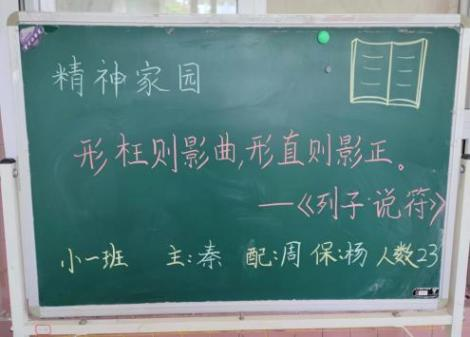 精神家园
形枉则影曲,形直则影正。
——《列子·说符》
小一班 主:秦 配:周 保:杨 人数23